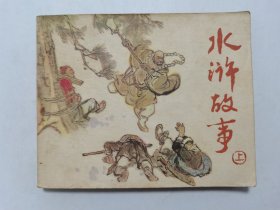 水浒故事
上